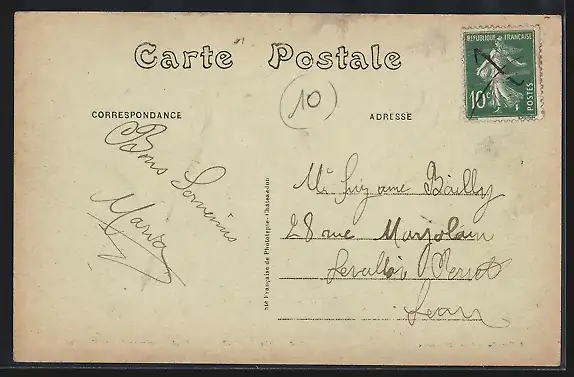 Carte Postale
RÉPUBLIQUE FRANÇAISE
10c
POSTES
(10)
CORRESPONDANCE
ADRESSE
Bons Souvenirs
Maria
Sté Française de Phototypie-Châteaudun
Mlle Suzanne Bailly
28 rue Marjolain
Levallois Perret
Seine